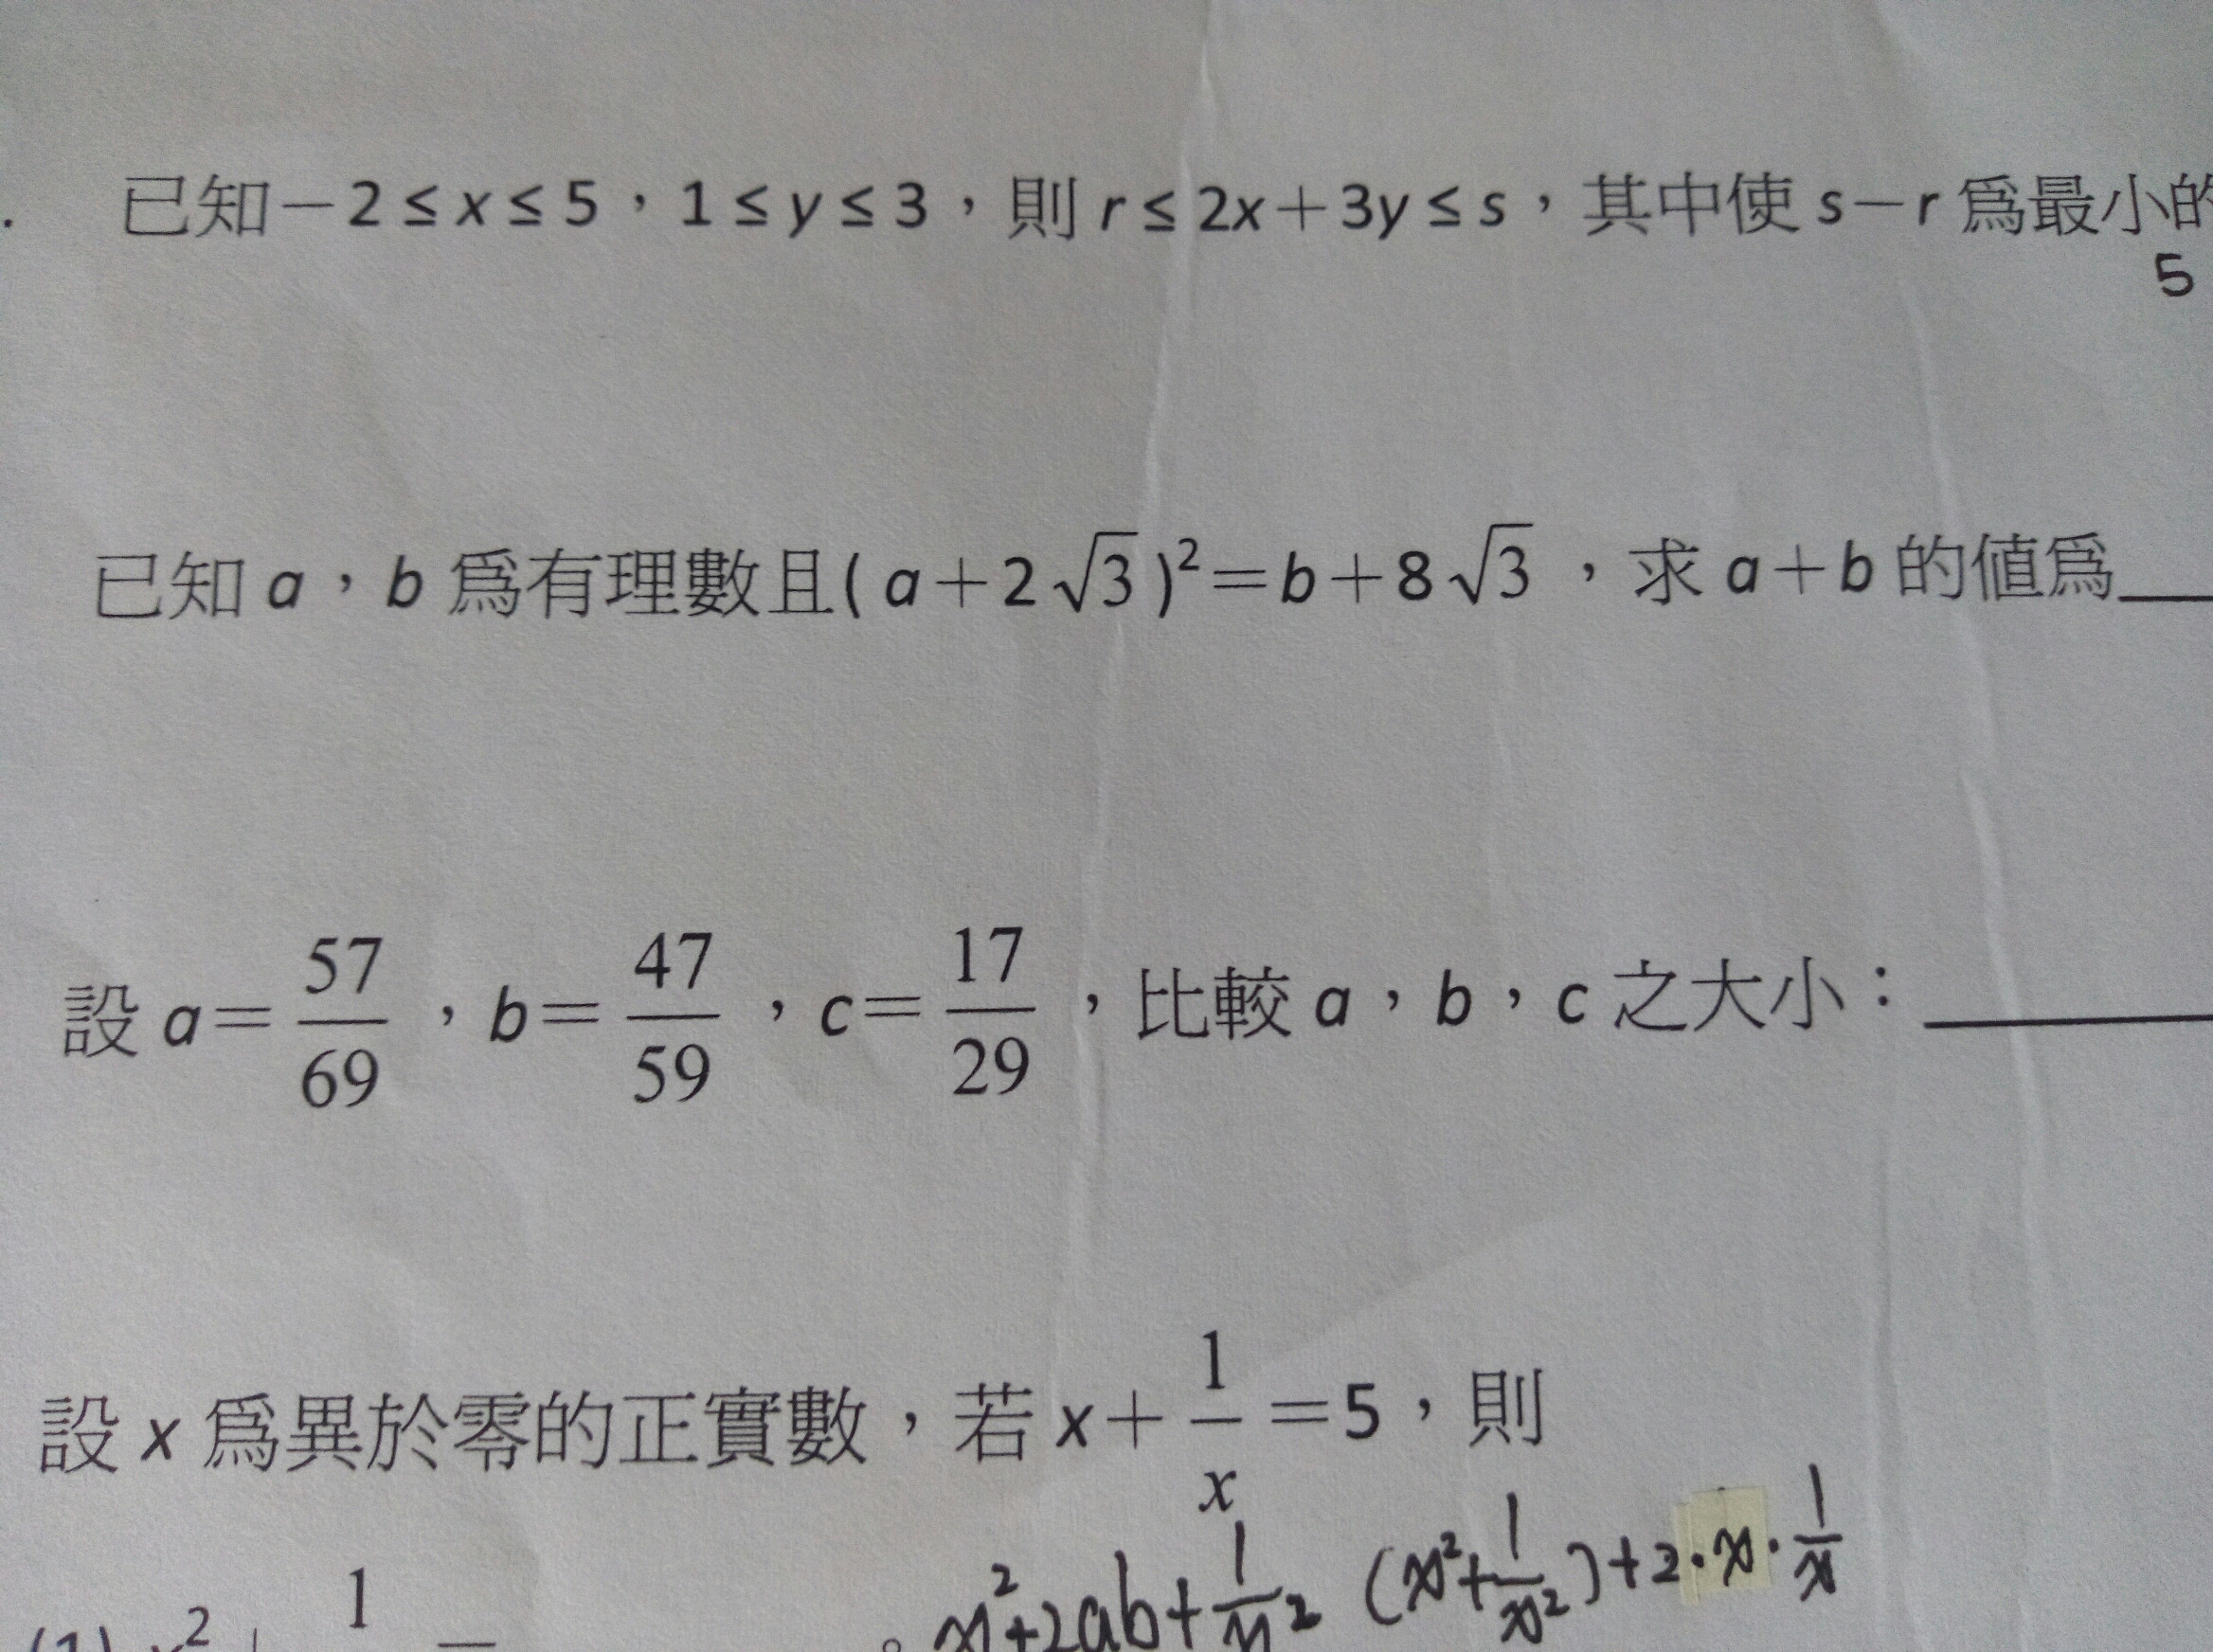 . 已知－2 ≤ x ≤ 5，1 ≤ y ≤ 3，則 r ≤ 2x＋3y ≤ s，其中使 s－r 爲最小的
5
已知 a，b 爲有理數且( a＋2√3 )²＝b＋8√3，求 a＋b 的値爲＿
設 a＝57/69，b＝47/59，c＝17/29，比較 a，b，c 之大小：＿＿＿
設 x 爲異於零的正實數，若 x＋1/x＝5，則
x²+2ab+1/x² (x²+1/x²)+2·x·1/x